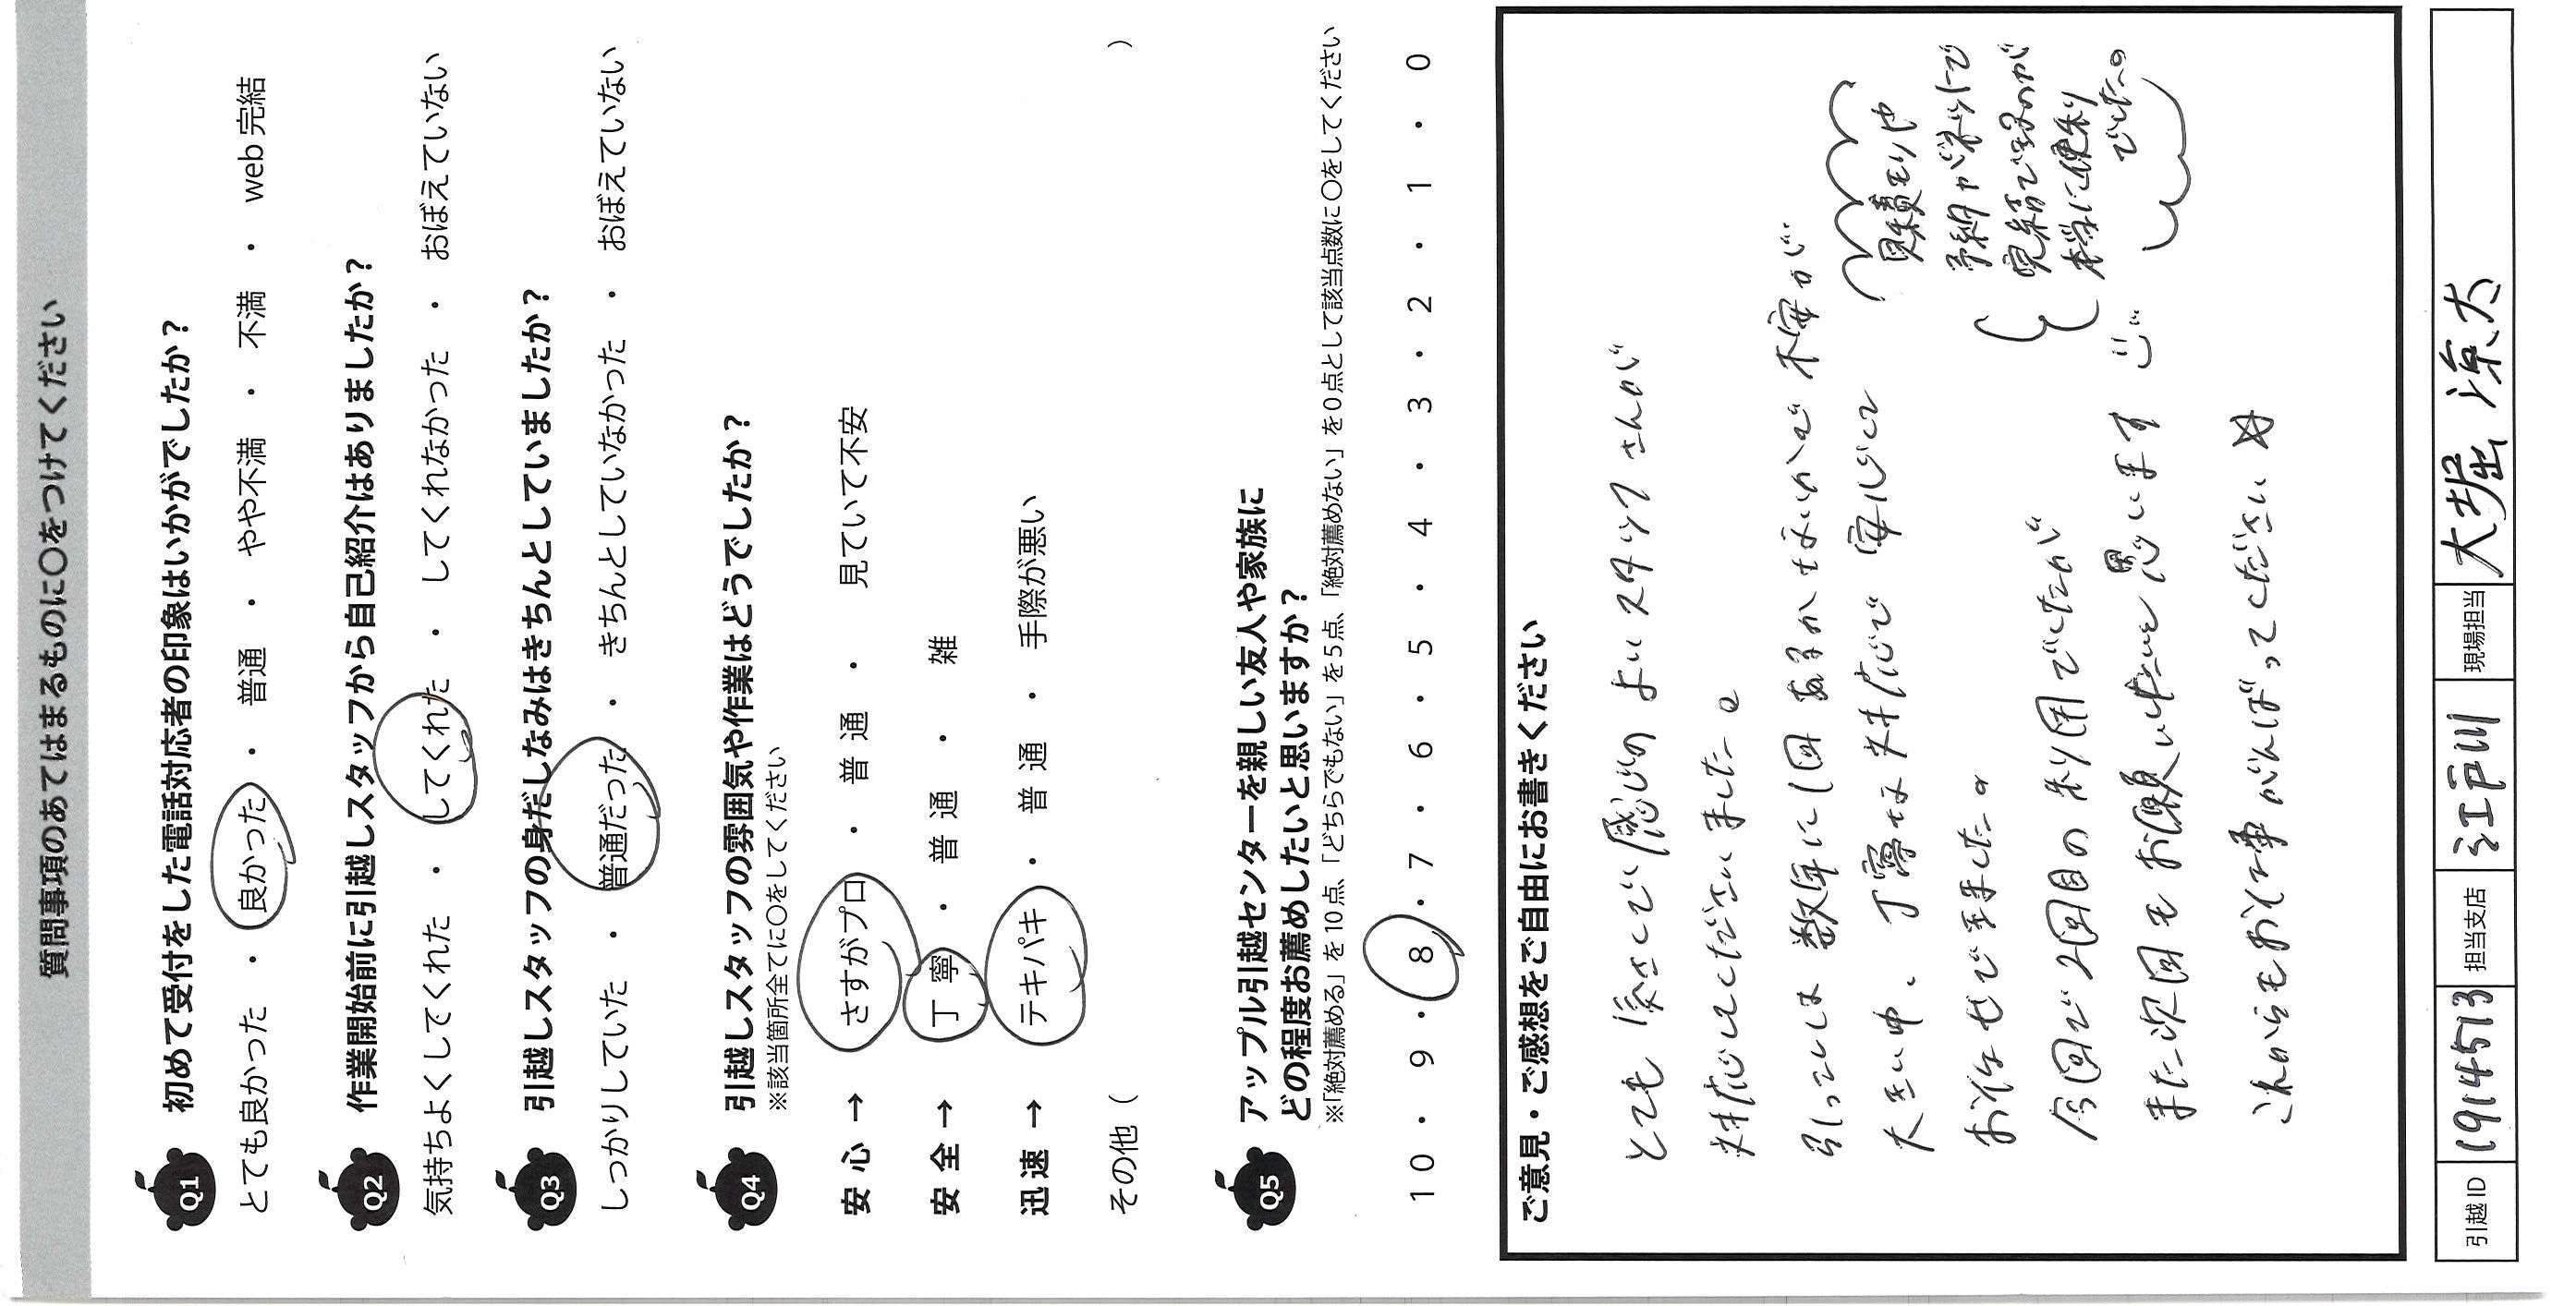 質問事項のあてはまるものに〇をつけてください
Q1 初めて受付をした電話対応者の印象はいかがでしたか？
とても良かった ・ 良かった ・ 普通 ・ やや不満 ・ 不満 ・ web 完結
Q2 作業開始前に引越しスタッフから自己紹介はありましたか？
気持ちよくしてくれた ・ してくれた ・ してくれなかった ・ おぼえていない
Q3 引越しスタッフの身だしなみはきちんとしていましたか？
しっかりしていた ・ 普通だった ・ きちんとしていなかった ・ おぼえていない
Q4 引越しスタッフの雰囲気や作業はどうでしたか？
※該当箇所全てに〇をしてください
安 心 → さすがプロ ・ 普 通 ・ 見ていて不安
安 全 → 丁 寧 ・ 普 通 ・ 雑
迅 速 → テキパキ ・ 普 通 ・ 手際が悪い
その他（ ）
Q5 アップル引越センターを親しい友人や家族に
どの程度お薦めしたいと思いますか？
※「絶対薦める」を 10 点、「どちらでもない」を 5 点、「絶対薦めない」を 0 点として該当点数に〇をしてください
10 ・ 9 ・ 8 ・ 7 ・ 6 ・ 5 ・ 4 ・ 3 ・ 2 ・ 1 ・ 0
ご意見・ご感想をご自由にお書きください
とても 気さくで 感じの よい スタッフ さんが
対応してくださいました。
引っこしは 数年に1回 あるか ないかで 不安が
大きい中、丁寧な 対応で 安心して
お任せできました。
今回で 2回目の 利用でしたが
また次回も お願いしたいと 思います
これからも お仕事 がんばってください ☆
見積もりや
予約がネットで
完結できるのが
本当に便利
でした。
引越 ID 1914513 担当支店 江戸川 現場担当 大堀 涼太